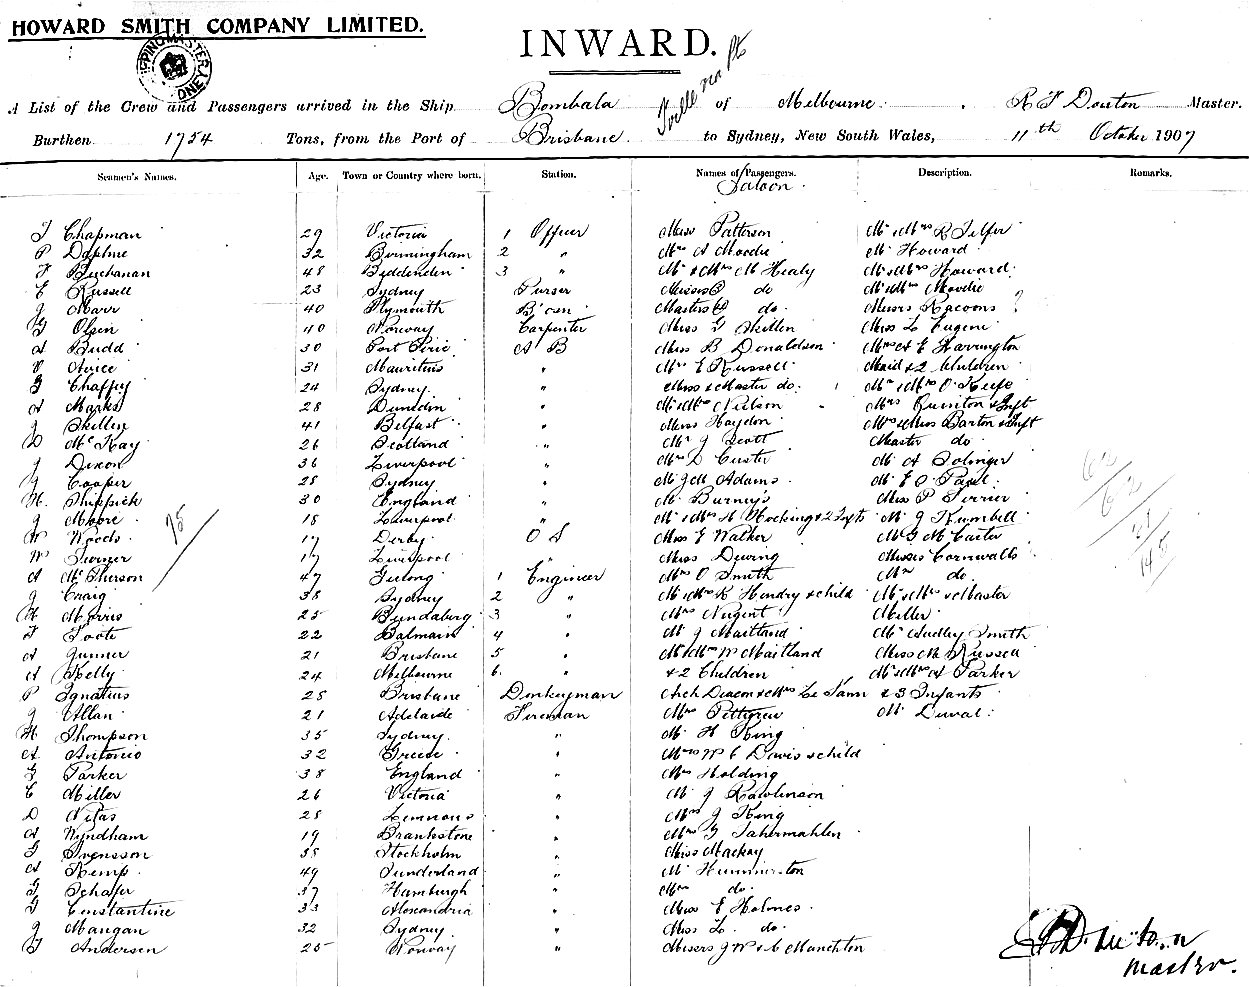 HOWARD SMITH COMPANY LIMITED.
INWARD.
A List of the Crew and Passengers arrived in the Ship Bombala of Melbourne, Master.
Burthen 1754 Tons, from the Port of Brisbane to Sydney, New South Wales, 11th October 1907
Seamen's Names. Age. Town or Country where born. Station. Names of Passengers. Description. Remarks.
Saloon
Chapman 29 Victoria 1 Officer Miss Patterson Mr & Mrs R Telfer
P Daphne 32 Birmingham 2 " Mrs A Moodie Mr Howard
F Buchanan 48 Biddenden 3 " Mr & Mrs M Healy Mr & Mrs Howard
E Russell 23 Sydney Purser Misses do Mr & Mrs Moodie
J Marr 40 Plymouth B'osn Masters do. Misses Racoons ?
Olsen 40 Norway Carpenter Miss G Skillen Miss L Eugene
A Budd 30 Port Pirie A B Miss B Donaldson Mrs A E Harrington
31 Mauritius " Mrs E Russell Maid & 2 Children
G Chaffey 24 Sydney " Miss & Master do. Mr & Mrs O'Keefe
A Marks 28 Dunedin " Mr & Mrs Neilson Mrs Quinton & Inft
J Skillen 41 Belfast " Miss Haydon Mrs & Miss Barton & Inft
D McKay 26 Scotland " Mr J Scott Master do.
J Dixon 36 Liverpool " Mrs D Custer Mr A Solinger
Cooper 28 Sydney " Mr J M Adams Mr E O Paul
H. Shippick 30 England " Mr Burney's Miss P Terrier
J Moore 18 Liverpool " Mr & Mrs H Hocking & 2 Infts Mr J Rumbell
W Woods 17 Derby O S Miss F Walker Mr G McCarter
W Turner 17 Liverpool " Miss Dewing Misses Cornwalls
A McPherson 47 Geelong 1 Engineer Mrs O Smith Mrs do.
J Craig 38 Sydney 2 " Mr & Mrs R Hendry & child Mr & Mrs & Master
H Morris 25 Bundaberg 3 " Mrs Nugent Miller
F Foote 22 Balmain 4 " Mr J Maitland Mr Dudley Smith
A Gunner 21 Brisbane 5 " Mr & Mrs W Maitland Miss M Russell
A Kelly 24 Melbourne 6 " & 2 Children Mr & Mrs A Parker
P Ignatius 28 Brisbane Donkeyman Arch Deacon & Mrs Le Fanu & 3 Infants
J Allan 21 Adelaide Fireman Mrs Pettigrew Mr Duval
H Thompson 35 Sydney " Mr H King
A Antonio 32 Greece " Mrs W C Davis & child
Parker 38 England " Mrs Holding
C Miller 26 Victoria " Mr J Rawlinson
D Nitas 28 Lemnos " Mrs J King
A Wyndham 19 Brankstone " Mrs G Tahermahlen
G Svensson 38 Stockholm " Miss Mackay
A Kemp 49 Sunderland " Mr
Schafer 37 Hamburgh " Mrs do.
Constantine 33 Alexandria " Miss E Holmes
J Mangan 32 Sydney " Miss L. do.
Andersen 25 Norway " Misers J W & C Manchton
75
62
62
21
145
Master.